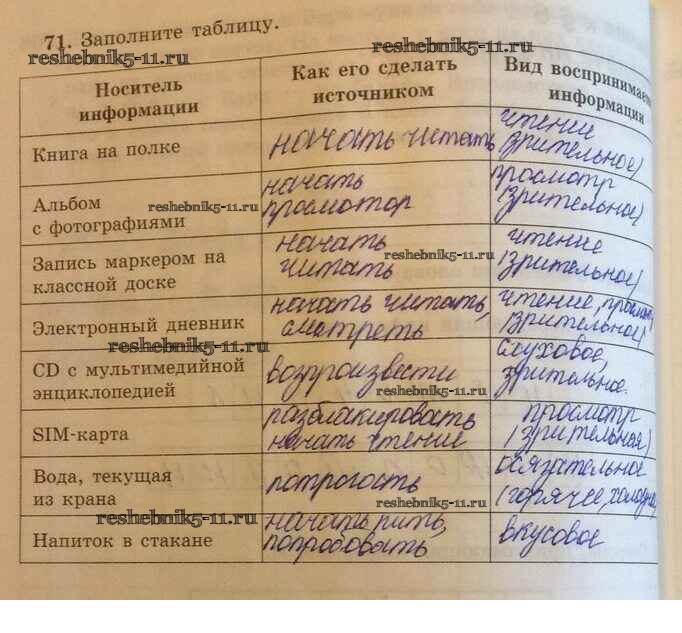 71. Заполните таблицу.
reshebnik5-11.ru
reshebnik5-11.ru
Носитель информации
Как его сделать источником
Вид воспринимаемой информации
Книга на полке
начать читать
чтение
(зрительное)
Альбом
с фотографиями
reshebnik5-11.ru
начать
просмотор
просмотр
(зрительное)
Запись маркером на
классной доске
начать
читать
reshebnik5-11.ru
чтение
(зрительное)
Электронный дневник
reshebnik5-11.ru
начать читать,
смотреть
чтение,
(зрительное)
CD с мультимедийной
энциклопедией
возпроизвести
reshebnik5-11.ru
слуховое,
зрительное.
SIM-карта
разблакировать
начать чтение
просмотр
(зрительная)
Вода, текущая
из крана
reshebnik5-11.ru
потрогость
reshebnik5-11.ru
осязательное
(горячее,
Напиток в стакане
начать пить,
попробовать
вкусовое